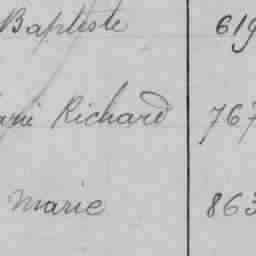 Baptiste 619
Richard 767
Marie 863